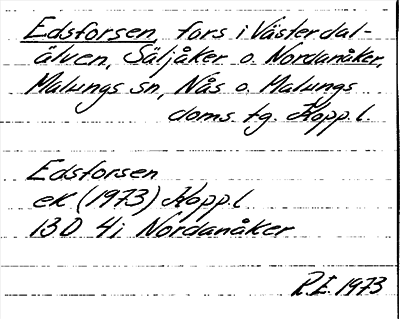 Edsforsen, fors i Västerdal-
älven, Säljåker o. Nordanåker,
Malungs sn, Nås o. Malungs
doms. tg. Kopp. l.
Edsforsen
ek (1973) Kopp. l
13D 4i Nordanåker
R.E. 1973